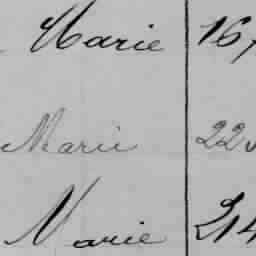 Marie 167
Marie 22
Marie 214